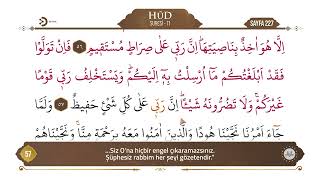 HÛD
SURESİ - 11
SAYFA 227
اِلَّا هُوَ اٰخِذٌ بِنَاصِيَتِهَاۜ اِنَّ رَبّ۪ي عَلٰى صِرَاطٍ مُسْتَق۪يمٍ ٥٦ فَاِنْ تَوَلَّوْا
فَقَدْ اَبْلَغْتُكُمْ مَٓا اُرْسِلْتُ بِه۪ٓ اِلَيْكُمْۜ وَيَسْتَخْلِفُ رَبّ۪ي قَوْماً
غَيْرَكُمْۚ وَلَا تَضُرُّونَهُ شَيْـٔاًۜ اِنَّ رَبّ۪ي عَلٰى كُلِّ شَيْءٍ حَف۪يظٌ ٥٧ وَلَمَّا
جَٓاءَ اَمْرُنَا نَجَّيْنَا هُوداً وَالَّذ۪ينَ اٰمَنُوا مَعَهُ بِرَحْمَةٍ مِنَّاۚ وَنَجَّيْنَاهُمْ
57
...Siz O'na hiçbir engel çıkaramazsınız.
Şüphesiz rabbim her şeyi gözetendir."